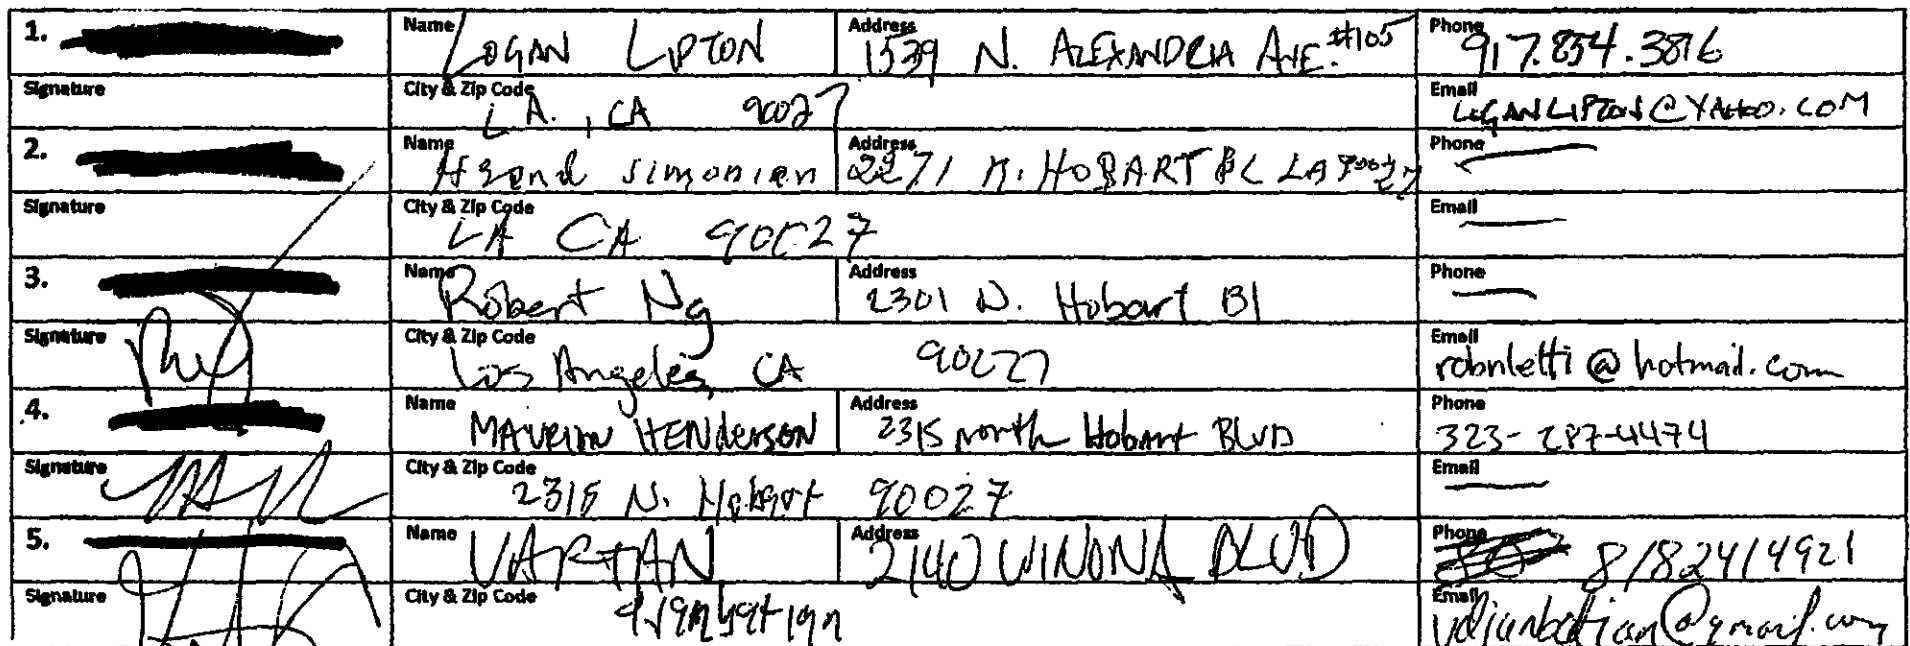 1. Name LOGAN LIPTON Address 1539 N. ALEXANDRIA AVE. #105 Phone 917.854.3816
Signature City & Zip Code L.A., CA 90027 Email LOGANLIPTON@YAHOO.COM
2. Name simonian Address 2271 N. HOBART BL LA 90027 Phone
Signature City & Zip Code LA CA 90027 Email
3. Name Robert Ng Address 2301 N. Hobart Bl Phone
Signature City & Zip Code Los Angeles, CA 90027 Email robnletti@hotmail.com
4. Name HENDERSON Address 2315 north Hobart BLVD Phone 323-287-4474
Signature City & Zip Code 2315 N. Hobart 90027 Email
5. Name VARTAN Address 2140 WINONA BLVD Phone 8182414921
Signature City & Zip Code Email